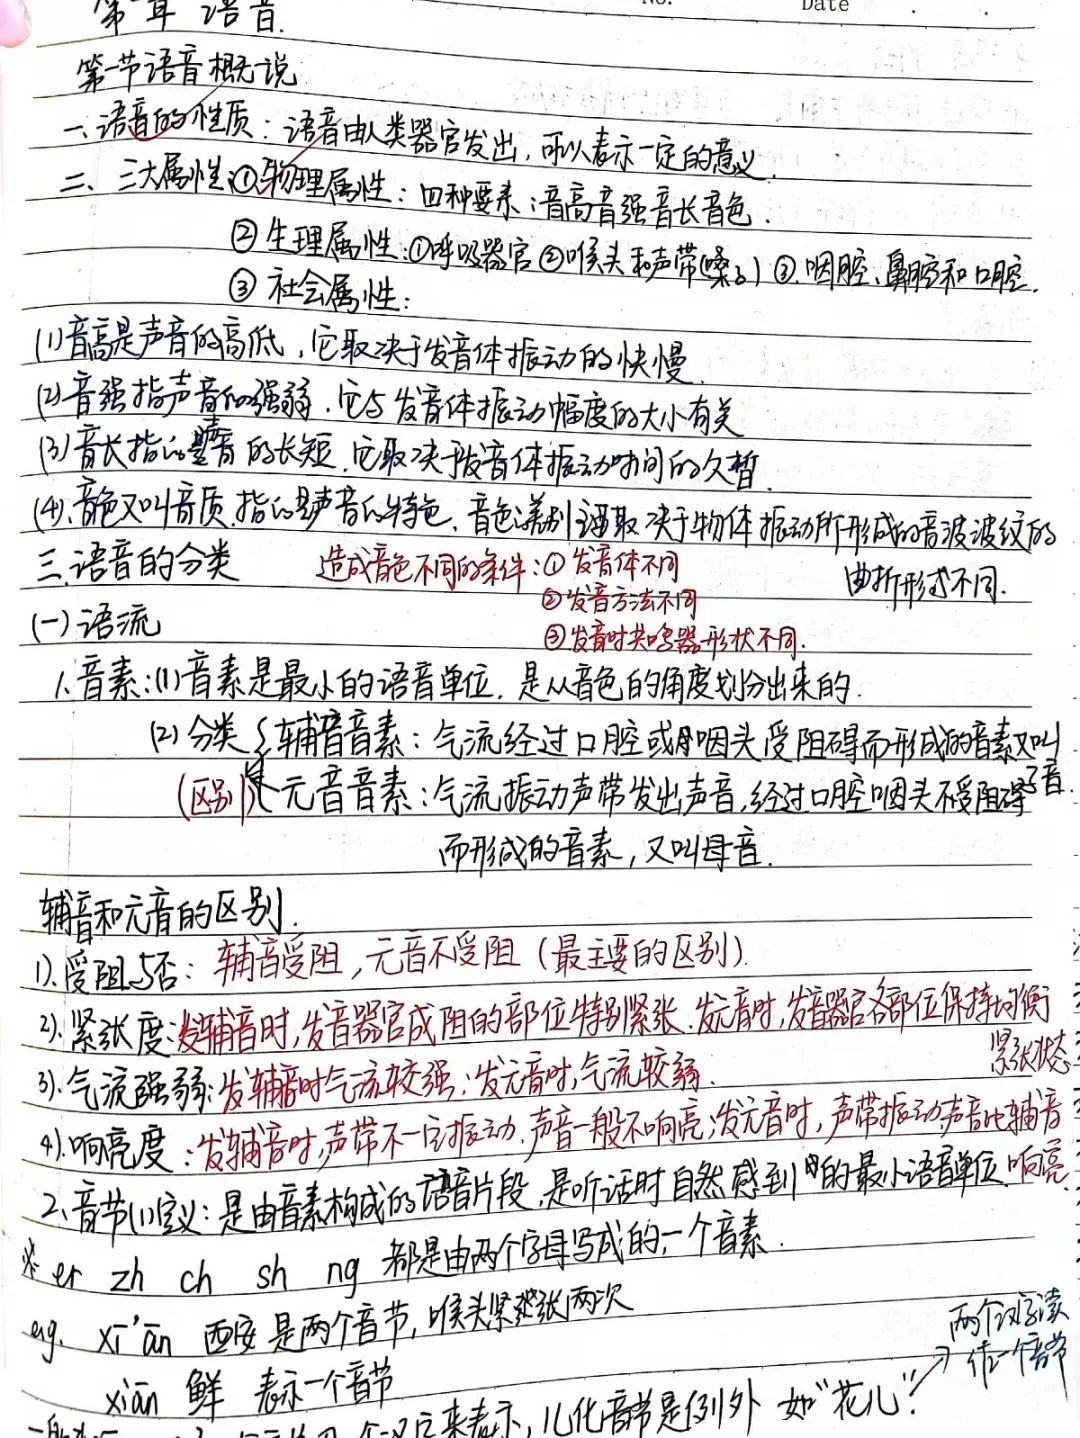 No. Date
第二章 语音
第一节语音概说
一、语音的性质：语音由人类器官发出，可以表示一定的意义.
二、三大属性：①物理属性：四种要素：音高音强音长音色.
②生理属性：①呼吸器官②喉头和声带(嗓子)③.咽腔、鼻腔和口腔.
③社会属性：
(1)音高是声音的高低，它取决于发音体振动的快慢.
(2)音强指声音的强弱.它与发音体振动幅度的大小有关
(3)音长指的是声音的长短.它取决于发音体振动时间的久暂.
(4).音色又叫音质.指的是声音的特色.音色差别主要取决于物体振动所形成的音波波纹的
曲折形式不同.
三.语音的分类 造成音色不同的条件：①发音体不同
②发音方法不同
③发音时共鸣器形状不同.
(一)语流
1.音素：(1)音素是最小的语音单位.是从音色的角度划分出来的.
(2)分类 辅音音素：气流经过口腔或咽头受阻碍而形成的音素又叫
子音.
(区别) 元音音素：气流振动声带发出声音，经过口腔咽头不受阻碍
而形成的音素，又叫母音.
辅音和元音的区别.
1).受阻与否：辅音受阻，元音不受阻(最主要的区别).
2).紧张度：发辅音时，发音器官成阻的部位特别紧张.发元音时，发音器官各部位保持均衡
紧张状态
3).气流强弱：发辅音时气流较强；发元音时，气流较弱.
4).响亮度：发辅音时，声带不一定振动，声音一般不响亮；发元音时，声带振动，声音比辅音
响亮
2.音节(1)定义：是由音素构成的语音片段，是听话时自然感到的最小语音单位.
※ er zh ch sh ng 都是由两个字母写成的一个音素.
eg. xī'ān 西安 是两个音节，喉头紧张两次
xiān 鲜 表示一个音节
两个汉字读
作一个音节
个汉字来表示，儿化音节是例外 如"花儿".